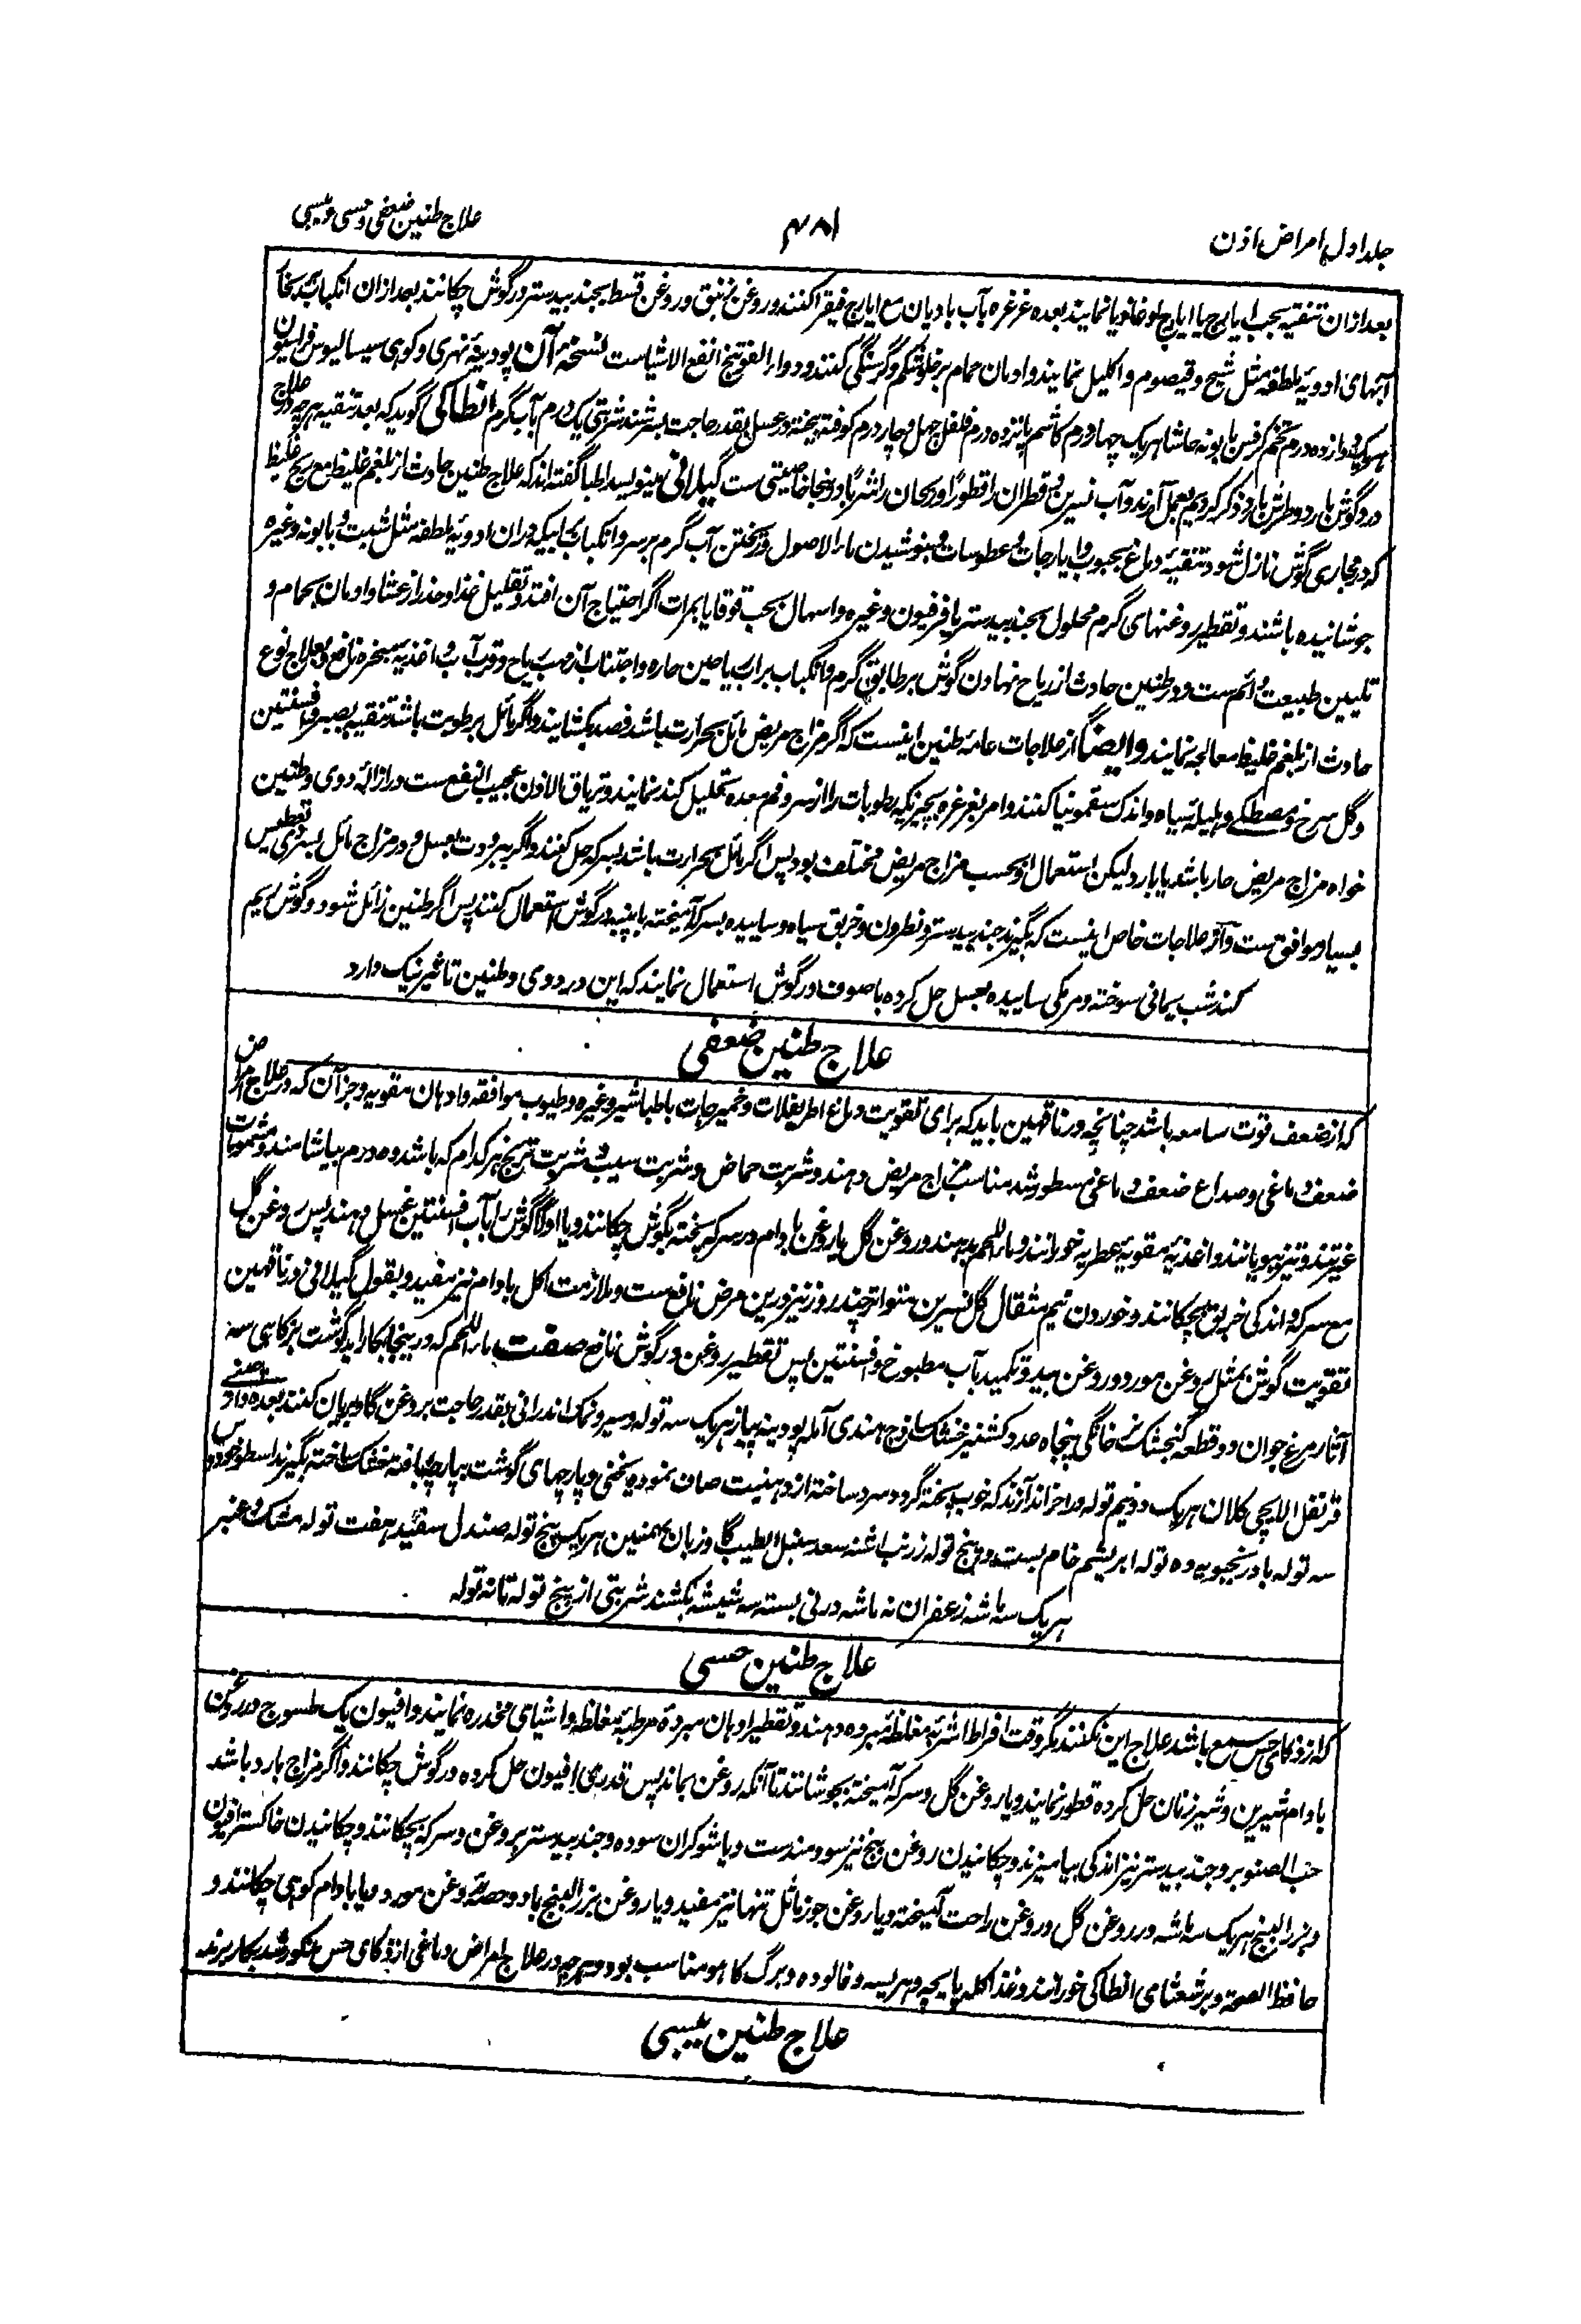 جلد اول امراض اذن
۴۸۱
علاج طنین ضعفی و حسی و یبسی
بعد ازان تنقیه بحب ایارج یا ایارج لوغاذیا نمایند بعده غرغره بآب بادیان مع ایارج فیقرا کنند و روغن زنبق و روغن قسط بجند بیدستر در گوش چکانند بعد ازان انکباب بر بخار
آبهای ادویه ملطفه مثل شیح و قیصوم و اکلیل نمایند و ادمان حمام بر خلو شکم و گرسنگی کنند و دواء الفوتنج انفع الاشیاست نسخهٔ آن پودینه نهری و کوهی سیسالیوس فراسیون
هریک دوازده درم تخم کرفس بابونه حاشا هریک چهار درم کاشم پانزده درم فلفل چهل و چار درم کوفته بیخته در عسل بقدر حاجت بسرشند شربتی یک درم بآب گرم انطاکی گوید که بعد تنقیه هرچه در علاج
درد گوش بارد و طرش بارد ذکر کردیم بعمل آرند و آب نسرین و قطران را قطورا و ریحان را شربا درینجا خاصیتی ست گیلانی مینویسد اطبا گفته اند که علاج طنین حادث از بلغم غلیظ مع ریح غلیظ
که در مجاری گوش نازل شود تنقیه دماغ بحبوب و ایارجات و عطوسات و نوشیدن ماء الاصول و ریختن آب گرم بر سر و انکباب بر آبیکه دران ادویه ملطفه مثل شبت و بابونه و غیره
جوشانیده باشند و تقطیر روغنهای گرم محلول بجند بیدستر یا فرفیون و غیره و اسهال بحب قوقایا بمرات اگر احتیاج آن افتد و تقلیل غذا و حذر از عشا و ادمان بحمام و
تلیین طبیعت دائم ست و در طنین حادث از ریاح نهادن گوش بر طابق گرم و انکباب بر آب ریاحین حاره و اجتناب از مهب ریاح و قرب آب و اغذیه مبخره نافع و بعلاج نوع
حادث از بلغم غلیظ معالجه نمایند وایضاً از علاجات عامه طنین اینست که اگر مزاج مریض مائل بحرارت باشد فصد بکشایند و اگر مائل برطوبت باشد تنقیه بصبر و افسنتین
و گل سرخ و مصطکی و هلیله سیاه و اندک سقمونیا کنند و امر بغرغره بچیزیکه رطوبات را از سر و فم معده تحلیل کند نمایند و تریاق الاذن عجیب النفع ست در ازاله دوی و طنین
خواه مزاج مریض حار باشد یا بارد لیکن استعمال او بحسب مزاج مریض مختلف بود پس اگر مائل بحرارت باشد بسرکه حل کنند و اگر ببرودت بعسل و در مزاج مائل بسردی تعطیس
بسیار موافق ست و از علاجات خاص اینست که بگیرند جند بیدستر و نطرون و خربق سیاه و ساییده بسرکه آمیخته با پنبه در گوش استعمال کنند پس اگر طنین زائل شود و گوش ایم
کند شب یمانی سوخته و مرمکی ساییده بعسل حل کرده با صوف در گوش استعمال نمایند که این در دوی و طنین تاثیر نیک دارد
علاج طنین ضعفی
که از ضعف قوت سامعه باشد چنانچه در ناقهین باید که برای تقویت دماغ اطریفلات و خمیرجات با طباشیر و غیره و طیوب موافقه و ادهان مقویه و جز آن که در علاج امراض
ضعف دماغی و صداع ضعف دماغی مسطور شد مناسب مزاج مریض دهند و شربت حماض و شربت سیب و شربت ترنج هرکدام که باشد ده درم بیاشامند و مشمومات
غیر تند و تیز ببویانند و اغذیه مقویه عطریه خورانند و ماء اللحم بدهند و روغن گل یا روغن بادام در سرکه پخته بگوش چکانند و یا اولا گوش را بآب افسنتین غسل دهند پس روغن گل
مع سرکه و اندکی خربق بچکانند و خوردن نیم مثقال گل نسرین متواتر چند روز نیز درین مرض نافع ست و ملازمت اکل بادام نیز مفید و بقول گیلانی در ناقهین
تقویت گوش بمثل روغن مورد و روغن بید و تکمید بآب مطبوخ افسنتین پس تقطیر روغن در گوش نافع صفت ماء اللحم که درینجا بکار آید گوشت بز کاهی سه
آثار مرغ جوان دو قطعه گنجشک نر خانگی پنجاه عدد کشنیز خشک ساذج هندی آمله پودینه پیاز هریک سه توله و سیر و نمک اندرانی بقدر حاجت بروغن گاو بریان کنند بعده دارچینی
قرنفل الایچی کلان هریک دو نیم توله دران اندازند که خوب پخته گردد سرد ساخته از دهنیت صاف نموده یخنی و پارچهای گوشت بپارچه صافی خشک ساخته بگیرند اسطوخودوس
سه توله بادرنجبویه ده توله ابریشم خام بست و پنج توله زرنب اشنه سعد سنبل الطیب گاوزبان بهمنین هریک پنج توله صندل سفید هفت توله مشک و عنبر
هریک سه ماشه زعفران نه ماشه در نی بسته سه شیشه بکشند شربتی از پنج توله تا نه توله
علاج طنین حسی
که از ذکای حس سمع باشد علاج این نکنند مگر وقت افراط اشربه مغلظه مبرده دهند و تقطیر ادهان مبرده مرطبه مغلظه و اشیای مخدره نمایند و افیون یک طسوج در روغن
بادام شیرین و شیر زنان حل کرده قطور نمایند و یا روغن گل و سرکه آمیخته بجوشانند تا آنکه روغن بماند پس قدری افیون حل کرده در گوش چکانند و اگر مزاج بارد باشد
حب الصنوبر و جند بیدستر نیز اندکی بیامیزند و چکانیدن روغن بنج نیز سودمند ست و یا شوکران سوده و جند بیدستر بروغن و سرکه بچکانند و چکانیدن خاکستر افیون
و بزرالبنج هریک سه ماشه در روغن گل و روغن راحت آمیخته و یا روغن جوز ماثل تنها نیز مفید و یا روغن بزرالبنج با دو حصه روغن مورد و یا بادام کوهی چکانند و
حافظ الصحه و برشعثای انطاکی خورانند و غذا کله پایچه و هریسه و فالوده و برگ کاهو مناسب بود و هرچه در علاج امراض دماغی از ذکای حس مذکور شد بکار برند
علاج طنین یبسی